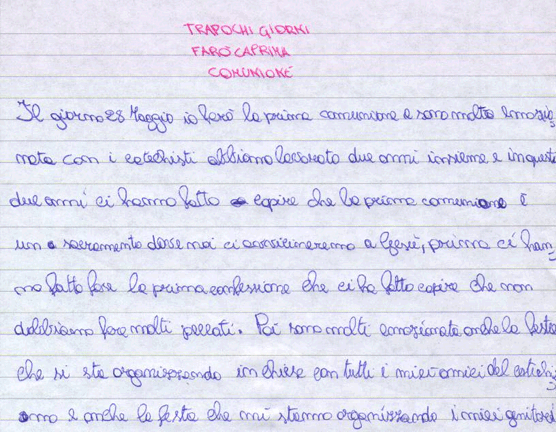 TRAPOCHI GIORNI
FARÒ LAPRIMA
COMUNIONE
Il giorno 28 Maggio io farò la prima comunione e sono molto emozio
nata con i catechisti abbiamo lavorato due anni insieme e in questi
due anni ci hanno fatto capire che la prima comunione è
un sacramento dove noi ci avvicineremo a Gesù, prima ci han
no fatto fare la prima confessione che ci ha fatto capire che non
dobbiamo fare molti peccati. Poi sono molti emozionata anche la festa
che si sta organizzando in chiesa con tutti i miei amici del catechi
smo e anche la festa che mi stanno organizzando i miei genitori